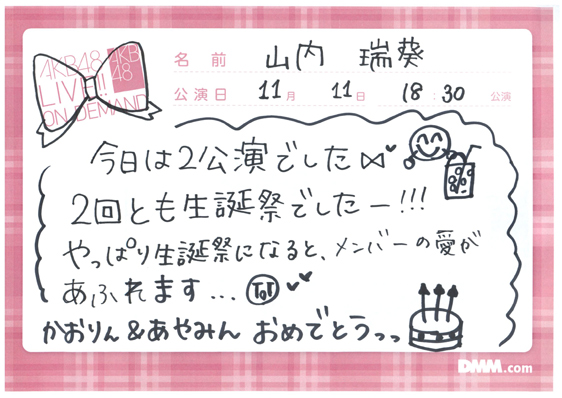 AKB48
LIVE!!!
ON DEMAND
AKB
48
名前 山内 瑞葵
公演日 11月 11日 18:30 公演
今日は2公演でした
2回とも生誕祭でしたー!!!
やっぱり生誕祭になると、メンバーの愛が
あふれます... ToT
かおりん&あやみん おめでとうっっ
DMM.com